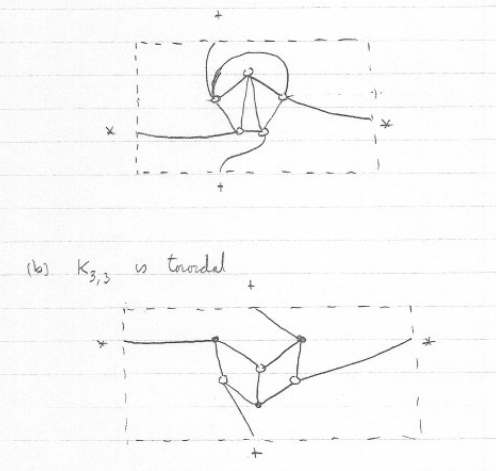 +
* *
+
(b) K3,3 is toroidal
+
* *
+